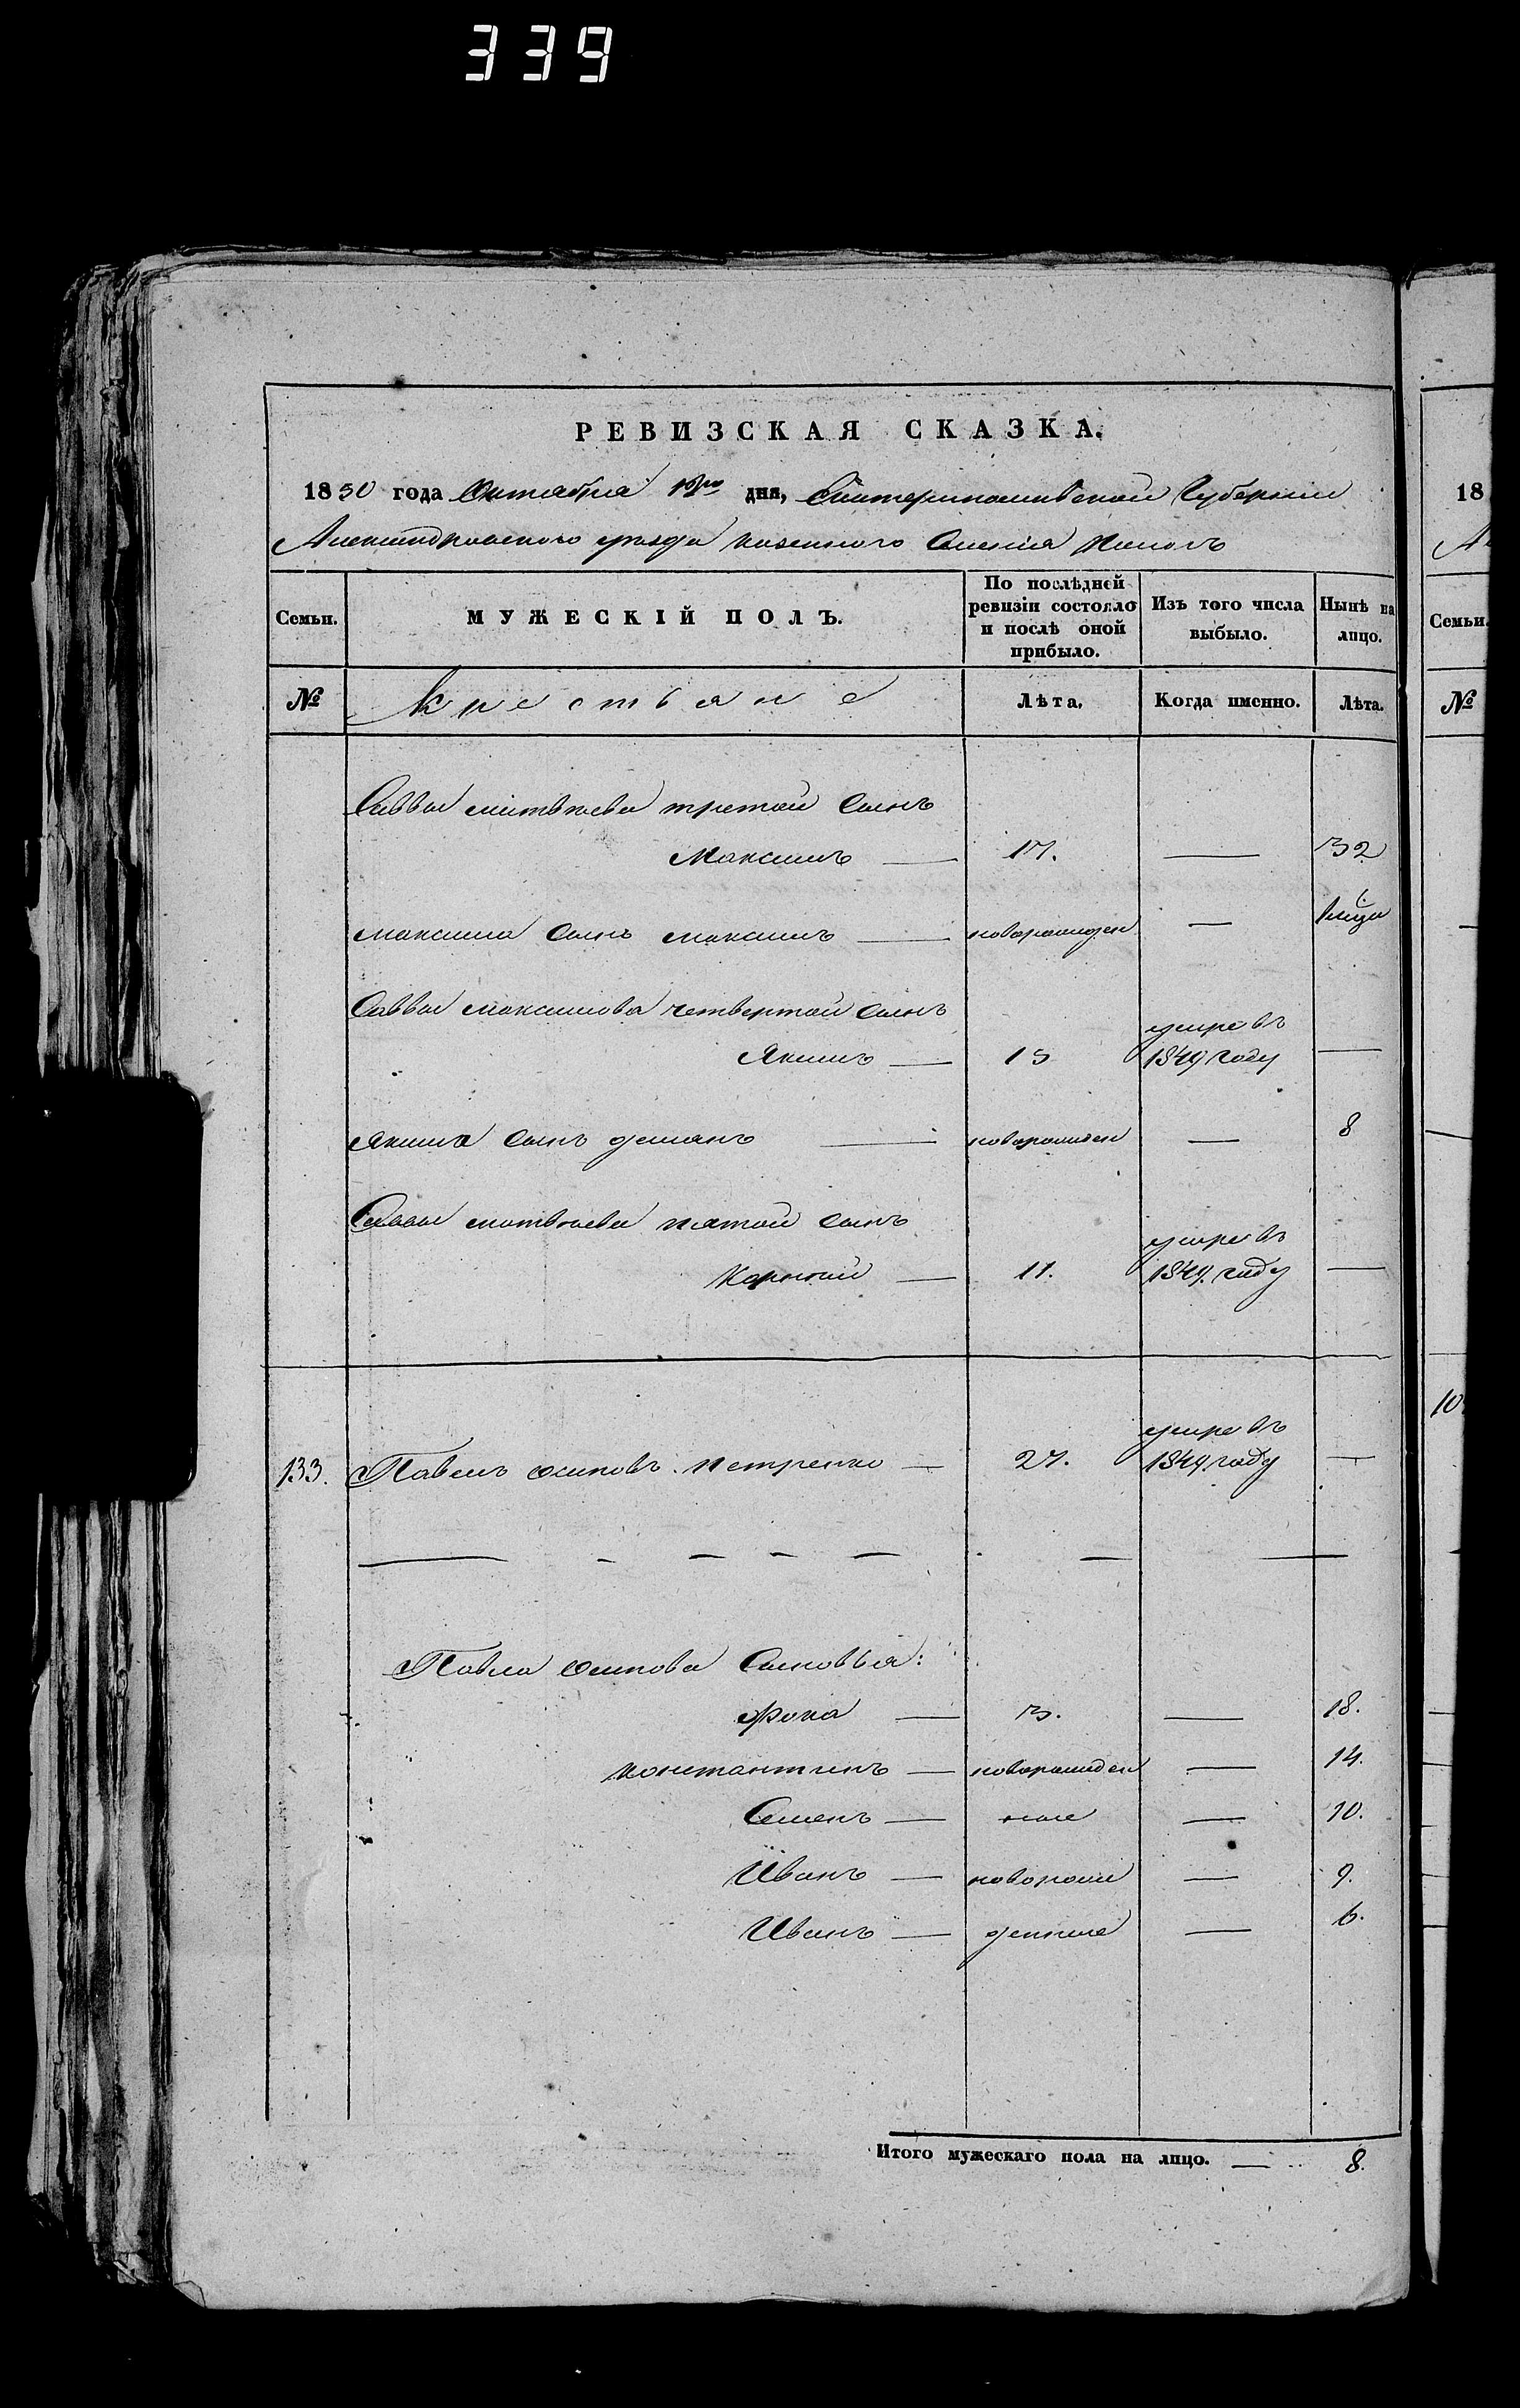 339
РЕВИЗСКАЯ СКАЗКА.
1850 года Октября дня, Екатеринославской Губернии
Александровского уезда казенного Селения
Семьи. МУЖЕСКІЙ ПОЛЪ. По послѣдней ревизіи состояло и послѣ оной прибыло. Изъ того числа выбыло. Нынѣ на лицо.
№ Крестьяне Лѣта. Когда именно. Лѣта.
Саввы Матвѣева третий Сынъ
Максимъ — 17. — 32
Максима Сынъ Максимъ — новорожден —
Саввы Максимова четвертой Сынъ
умре въ
Якимъ — 15 1849 году —
Якима Сынъ Демянъ — новорожден — 8
Саввы Матвѣева пятой Сынъ
умре въ
Корней — 11. 1849. году —
умре въ
133. Павелъ Осиповъ Петренко — 27. 1849. году —
Павла Осипова Сыновья:
Фока — 3. — 18.
Константинъ — новорожден — 14.
Семенъ — — 10.
Иванъ — новорож — 9.
Иванъ — денные — 6.
Итого мужескаго пола на лицо. — 8.
18
А
Семьи.
№
10